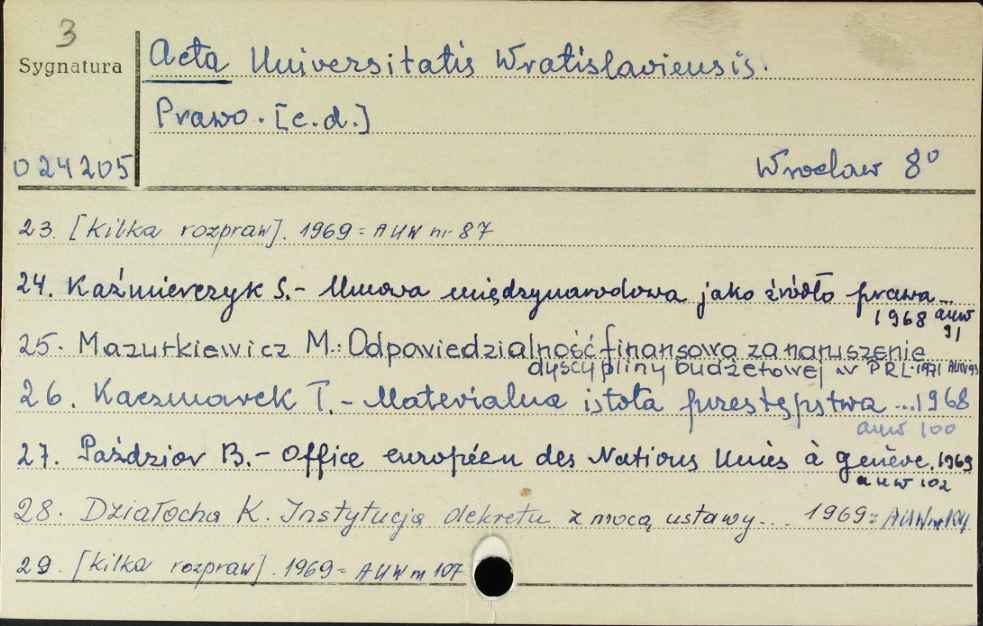 3
Sygnatura
Acta Universitatis Wratislaviensis.
Prawo. [c.d.]
024205
Wrocław 8°
23. [Kilka rozpraw]. 1969 = AUW nr 87
24. Kaźmierczyk S. - Umowa międzynarodowa jako źródło prawa...
1968 auw 91
25. Mazurkiewicz M.: Odpowiedzialność finansowa za naruszenie
dyscypliny budżetowej w PRL. 1971 AUW 93
26. Kaczmarek T. - Materialna istota przestępstwa ... 1968
auw 100
27. Paździor B. - Office européen des Nations Unies à genève. 1969
auw 102
28. Działocha K. Instytucja dekretu z mocą ustawy... 1969 = AUW nr
29. [kilka rozpraw]. 1969 = AUW nr 107